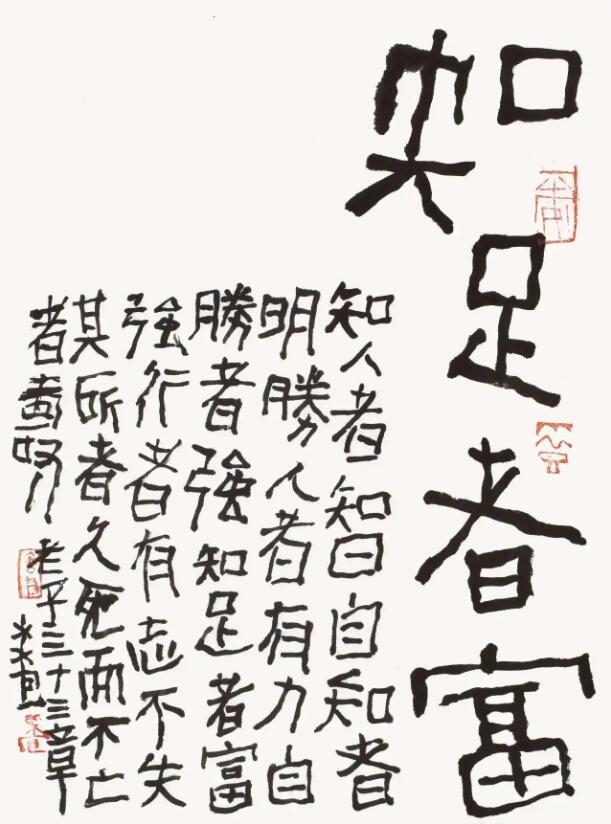 知足者富
知人者智自知者
明勝人者有力自
勝者強知足者富
強行者有志不失
其所者久死而不亡
者壽 老子三十三章